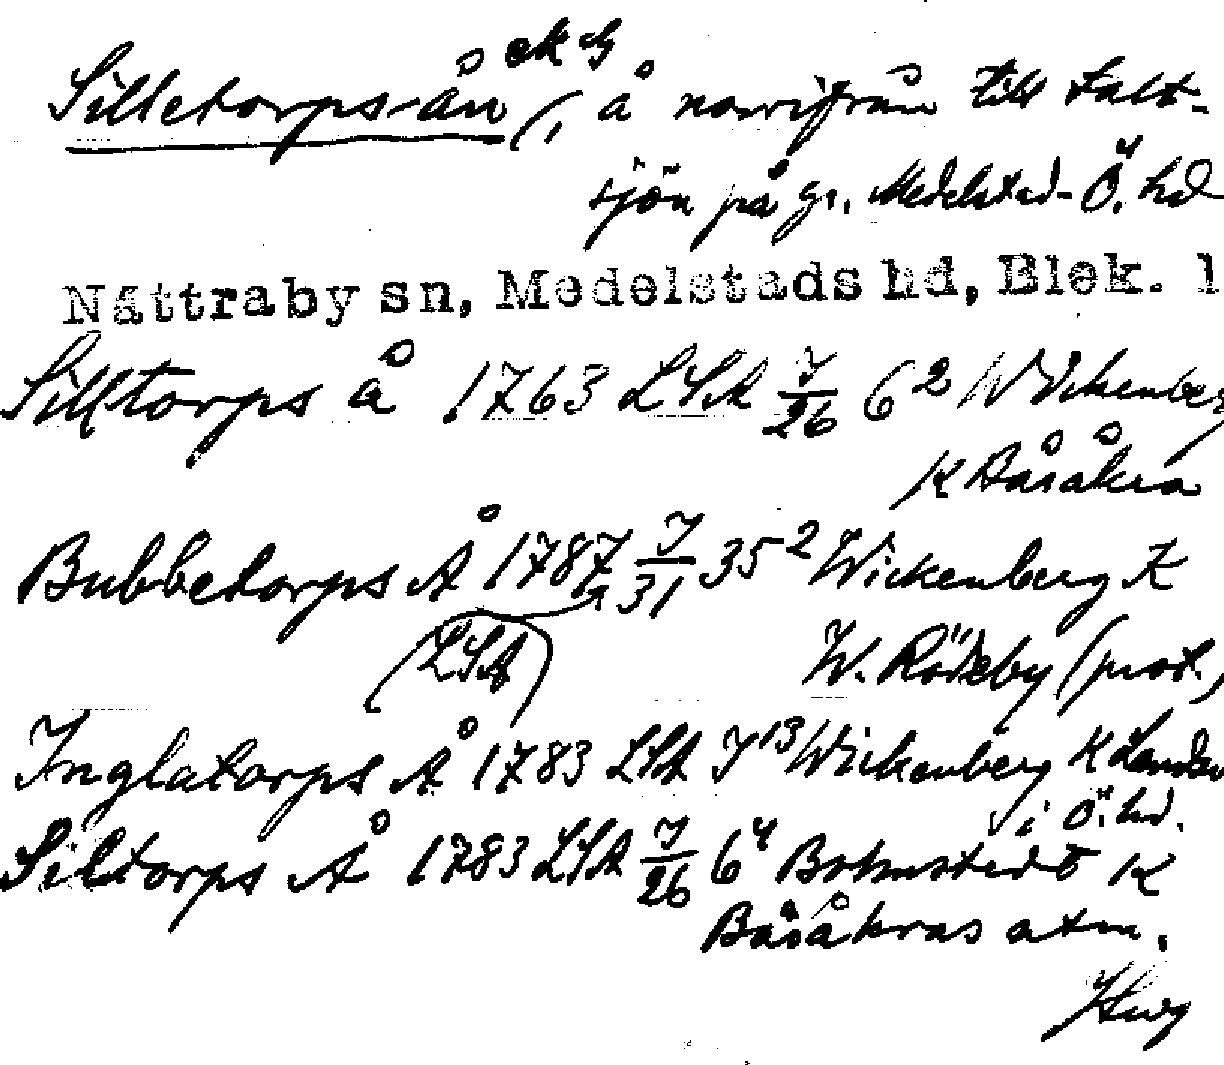 Silletorps-ån ek G
(, å norrifrån till Salt-
sjön på gr. Medelstad-Ö. hd
Nättraby sn, Medelstads hd, Blek. l
Silltorps å 1763 LSA J/26 6² W Wickenberg
K Båsåkra
Bubbetorps Å 1787 J/31 35² Wickenberg K
(LSA) W. Rödeby (prot.)
Inglatorps Å 1783 LSA J¹³ Wickenberg K
i Ö. hd.
Siltorps Å 1783 LSA J/26 6⁴ Bohnstedt K
Båsåkras atm.